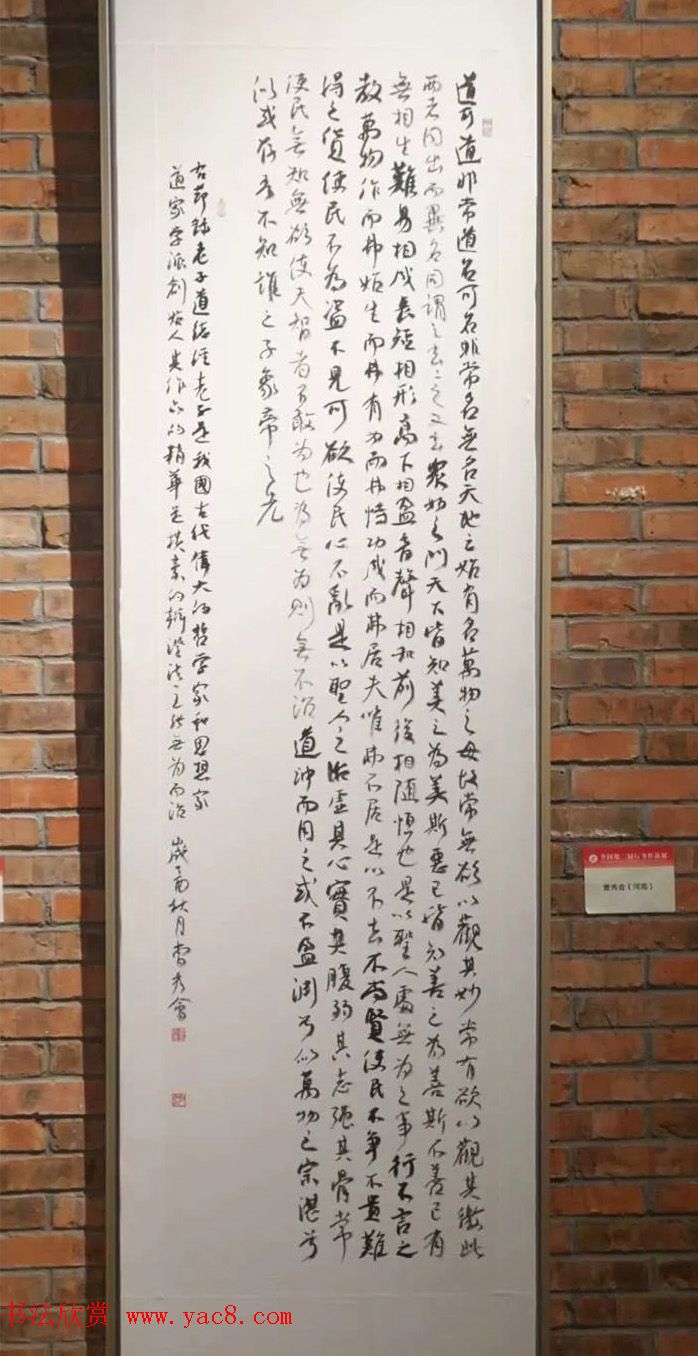 道可道非常道名可名非常名無名天地之始有名萬物之母故常無欲以觀其妙常有欲以觀其徼此
两者同出而異名同謂之玄玄之又玄眾妙之門天下皆知美之為美斯惡已皆知善之為善斯不善已有
無相生難易相成長短相形高下相盈音聲相和前後相隨恒也是以聖人處無為之事行不言之
教萬物作而弗始生而弗有為而弗恃功成而弗居夫唯弗居是以不去不尚賢使民不争不貴難
得之貨使民不為盗不見可欲使民心不亂是以聖人之治虚其心實其腹弱其志强其骨常
使民無知無欲使夫智者不敢為也為無為則無不治道沖而用之或不盈渊兮似萬物之宗湛兮
似或存吾不知誰之子象帝之先
古節錄老子道德經老子是我國古代偉大的哲学家和思想家
道家学派創始人其作品的精華是樸素的辩證法主張無為而治 歲 秋月曹秀會
全国第二届行书作品展
曹秀会（河南）
书法欣赏 www.yac8.com